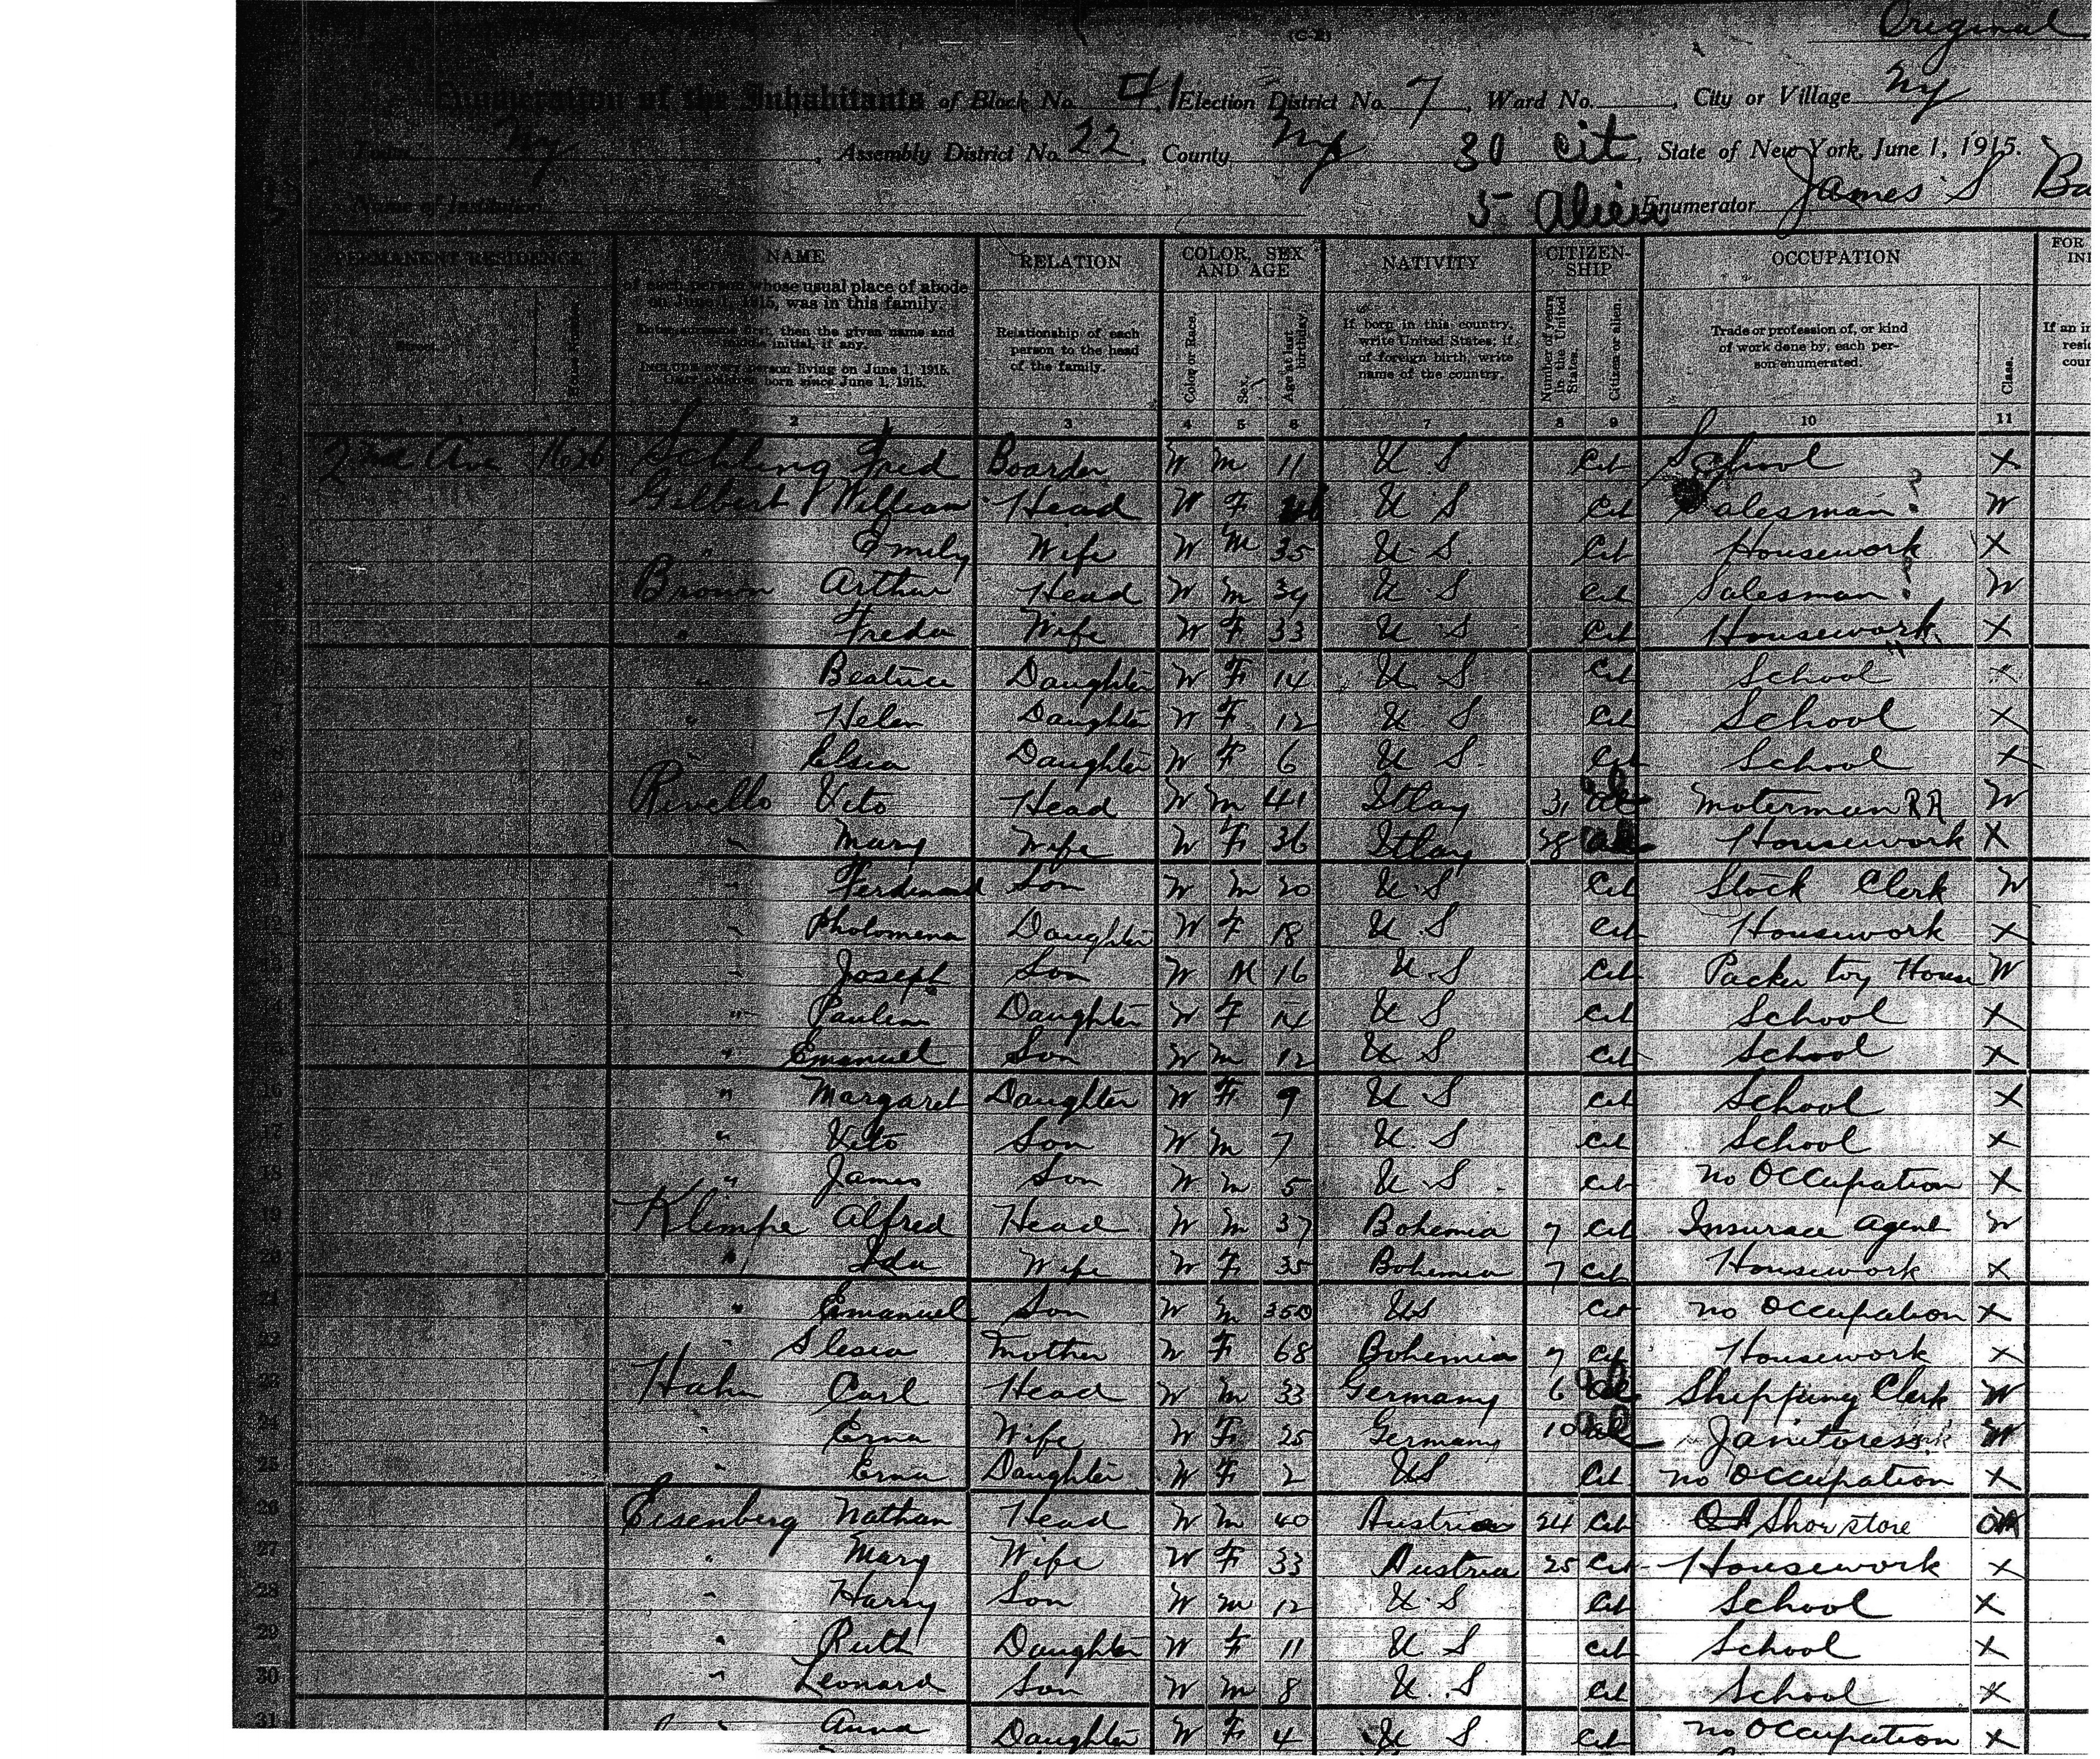 Original
(C-2)
Enumeration of the Inhabitants of Block No. 4, Election District No. 7, Ward No. , City or Village NY
Town NY, Assembly District No. 22, County NY 30 Cit, State of New York, June 1, 1915.
Name of Institution 5 Alien Enumerator James S Ba
PERMANENT RESIDENCE NAME RELATION COLOR, SEX AND AGE NATIVITY CITIZEN-SHIP OCCUPATION FOR
of each person whose usual place of abode on June 1, 1915, was in this family.
Enter surname first, then the given name and middle initial, if any.
Include every person living on June 1, 1915. Omit children born since June 1, 1915.
Street House Number
Relationship of each person to the head of the family.
Color or Race. Sex. Age at last birthday.
If born in this country, write United States; if of foreign birth, write name of the country.
Number of years in the United States. Citizen or alien.
Trade or profession of, or kind of work done by, each person enumerated. Class.
1 2 3 4 5 6 7 8 9 10 11
2nd Ave 1626 Fred Boarder W M 11 U S Cit School X
2 Gilbert William Head W F U S Cit Salesman W
" Emily Wife W M 35 U S Cit Housework X
4 Brown Arthur Head W M 39 U S Cit Salesman W
" Freda Wife W F 33 U S Cit Housework X
" Beatrice Daughter W F 14 U S Cit School X
" Helen Daughter W F 12 U S Cit School X
8 " Elsia Daughter W F 6 U S Cit School X
Rivello Vito Head W M 41 Itlay 31 al Moterman RR W
10 " Mary Wife W F 36 Itlay 38 al Housework X
11 " Ferdinand Son W M 20 U S Cit Stock Clerk W
12 " Pholomena Daughter W F 18 U S Cit Housework X
13 " Joseph Son W M 16 U S Cit Packer toy House W
14 " Paulina Daughter W F 14 U S Cit School X
15 " Emanuel Son W M 12 U S Cit School X
16 " Margaret Daughter W F 9 U S Cit School X
17 " Vito Son W M 7 U S Cit School X
18 " James Son W M 5 U S Cit no Occupation X
19 Klempe Alfred Head W M 37 Bohemia 7 Cit Insurace Agent W
20 " Ida Wife W F 35 Bohemia 7 Cit Housework X
21 " Emanuel Son W M US Cit no Occupation X
22 " Slesia Mother W F 68 Bohemia 7 Cit Housework X
23 Hahn Carl Head W M 33 Germany 6 al Shippung Clerk W
24 " Erna Wife W F 25 Germany 10 al Janitoress W
25 " Erna Daughter W F 2 US Cit no Occupation X
26 Eisenberg Nathan Head W M 40 Austria 24 Cit Shoe store OA
27 " Mary Wife W F 33 Austria 25 Cit Housework X
28 " Harry Son W M 12 U S Cit School X
29 " Ruth Daughter W F 11 U S Cit School X
30 " Leonard Son W M 8 U S Cit School X
31 " Anna Daughter W F 4 U S Cit no Occupation X